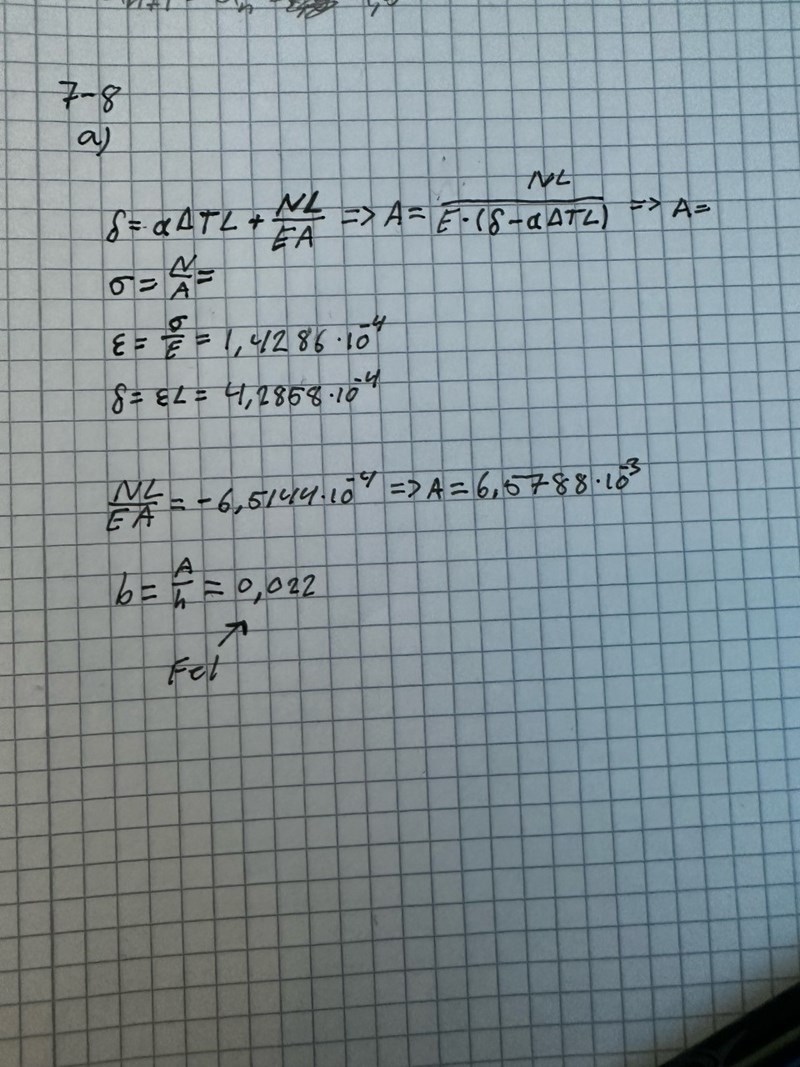 7-8
a)
δ = αΔTL + NL/EA => A = NL/E·(δ-αΔTL) => A=
σ = N/A =
ε = σ/E = 1,4286·10^-4
δ = εL = 4,2858·10^-4
NL/EA = -6,5144·10^-4 => A = 6,5788·10^-3
b = A/h = 0,022
Fel